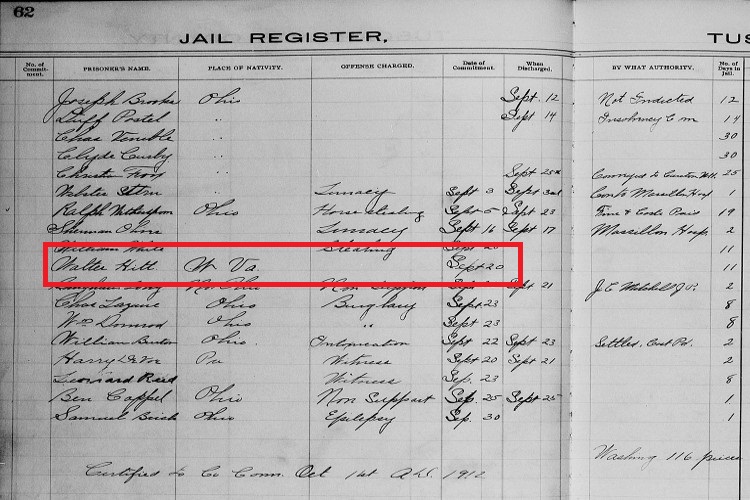 62
JAIL REGISTER, TUS
No. of Commit-ment. PRISONER'S NAME. PLACE OF NATIVITY. OFFENSE CHARGED. Date of Commitment. When Discharged. BY WHAT AUTHORITY. No. of Days in Jail.
Joseph Brooks Ohio Sept. 12 Not Indicted 12
Duff Postel " Sept 14 Insolvency Com 14
Chas Venuble " 30
Clyde " 30
" Sept 25 to Canton 25
Webster Lunacy Sept 3 Sept 3rd Massillon Hosp 1
Ralph Witherspoon Ohio Horse stealing Sept 5 Sept 23 Fine & Costs Paid 19
Sherman Lunacy Sept 16 Sept 17 Massillon Hosp 2
William Stealing Sept 20 11
Walter Hill W Va Sept 20 11
Long Non Support Sept 21 J.E. Mitchell J.P. 2
Chas Ohio Burglary Sept 23 8
Wm Ohio " Sept 23 8
William Burton Ohio. Intoxication Sept 22 Sept 23 Settled, Cost Pd. 2
Harry DeVor Pa Witness Sept 20 Sept 21 2
Leonard Reed Witness Sep. 23 8
Ben Cappel Ohio Non Support Sep. 25 Sept 25 1
Samuel Ohio Epilepsy Sep. 30 1
Washing 116 pieces
Certified to Co Com. Oct 1st A.D. 1912